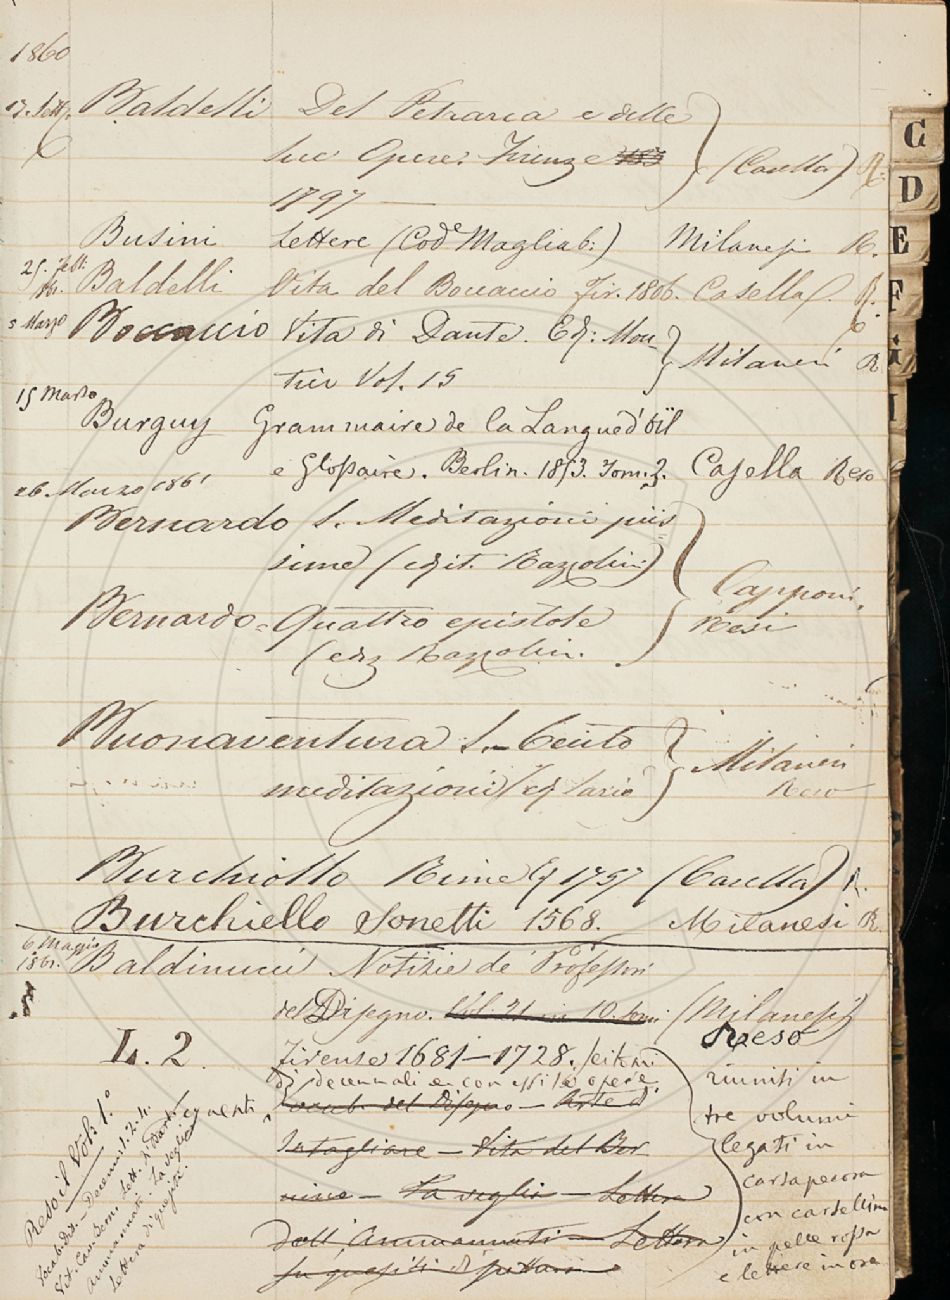 1860
17. Sett.
Baldelli Del Petrarca e delle
sue Opere. Firenze 183
1797 — (Casella) R.
Busini Lettere (Codᵉ Magliab:) Milanesi R.
25. Febb.
1861. Baldelli Vita del Boccaccio Fir. 1806. Casella. R.
5 Marzo Boccaccio Vita di Dante. Ediz: Mou-
tier Vol. 15 Milanesi R
15 Marzo
Burguy Grammaire de la Langue d'oïl
e Glossaire. Berlin. 1853. Tom. 3. Casella Reso
26. Marzo 1861
Bernardo S. Meditazioni piis
sime (edit. Razzolini)
Capponi.
Bernardo = Quattro epistole Resi
(ediz Razzolini.
Buonaventura S. — Cento Milanesi
meditazioni Reso
Burchiello Rime 1757 (Casella) R.
Burchiello Sonetti 1568. Milanesi R.
6 Maggio
1861. Baldinucci Notizie de' Professori
del Disegno. Vol. 21 in 10. tomi (Milanesi)
Reso
L. 2 Firenze 1681–1728. sei tomi
di decennali e con essi le opere
riuniti in
seguenti
Vocab. del Disegno — Arte d'
tre volumi
Intagliare — Vita del Ber
legati in
nino — La veglia — Lettera
cartapecora
con cartellino
Dell'Ammannati — Lettera
in pelle rossa
su quesiti di pittura
e lettere in oro
Reso il Vol: 1.º
Vocab. Dis. — Decenn. 1. 2. 4.
Ammannati. La veglia
Lettera di quesiti.